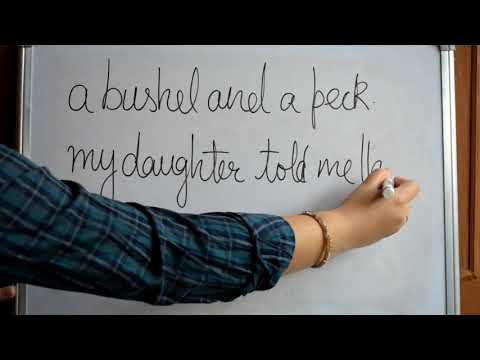 a bushel and a peck.
my daughter told me